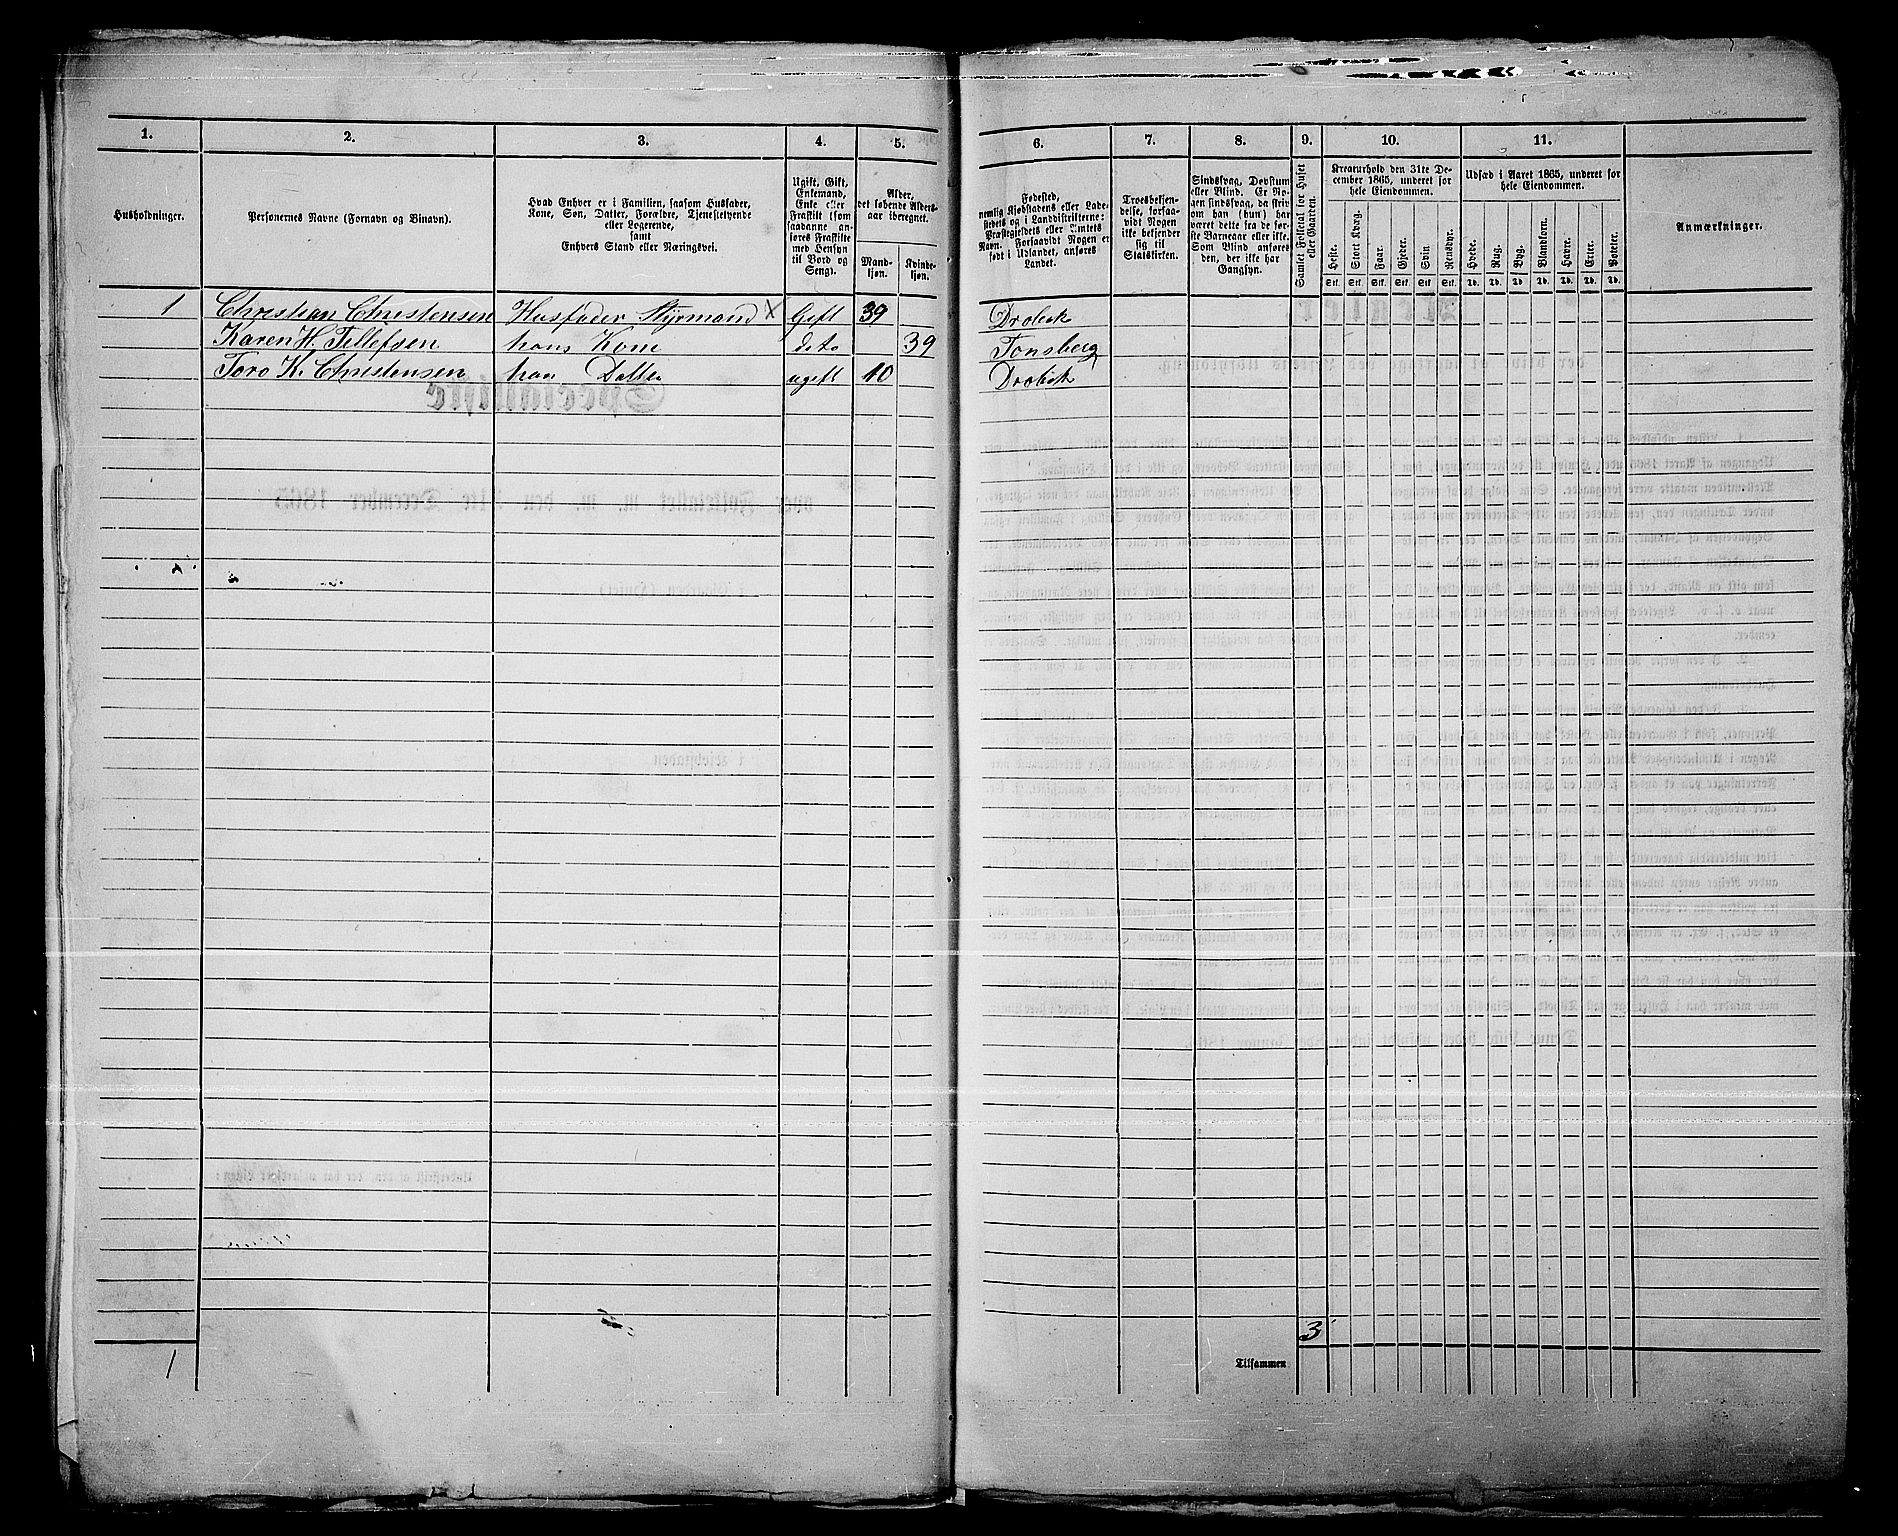 1. 2. 3. 4. 5. 6. 7. 8. 9. 10. 11.
Husholdninger.
Personernes Navne (Fornavn og Binavn).
Hvad Enhver er i Familien, saasom Husfader,
Kone, Søn, Datter, Forældre, Tjenestetyende
eller Logerende,
samt
Enhvers Stand eller Næringsvei.
Ugift, Gift,
Enkemand,
Enke eller
Fraskilt (som
saadanne an-
føres Fraskilte
med Hensyn
til Bord og
Seng).
Alder,
det løbende Alders-
aar iberegnet.
Mand-
kjøn.
Kvinde-
kjøn.
Fødested,
nemlig Kjøbstadens eller Lade-
stedets og i Landdistrikterne:
Præstegjeldets eller Amtets
Navn. Forsaavidt Nogen er
født i Udlandet, anføres
Landet.
Troesbekjen-
delse, forsaa-
vidt Nogen
ikke bekjender
sig til
Statskirken.
Sindssvag, Døvstum
eller Blind. Er No-
gen sindssvag, da skriv
om han (hun) har
været dette fra de før-
ste Barneaar eller ikke.
Som Blind anføres
den, der ikke har
Gangsyn.
Samlet Folketal for Huset
eller Gaarden.
Kreaturhold den 31te De-
cember 1865, underet for
hele Eiendommen.
Heste. Stort Kvæg. Faar. Gjeder. Svin Rensdyr.
Stk. Stk. Stk. Stk. Stk. Stk.
Udsæd i Aaret 1865, underet for
hele Eiendommen.
Hvede. Rug. Byg. Blandkorn. Havre. Erter. Poteter.
Td. Td. Td. Td. Td. Td. Td.
Anmærkninger.
1 Christian Christensen Husfader Styrmand X Gift 39 Drobak
Karen H. Tellefsen hans Kone dito 39 Tonsberg
Toro K. Christensen han Datter ugift 10 Drobak
3
Tilsammen
1